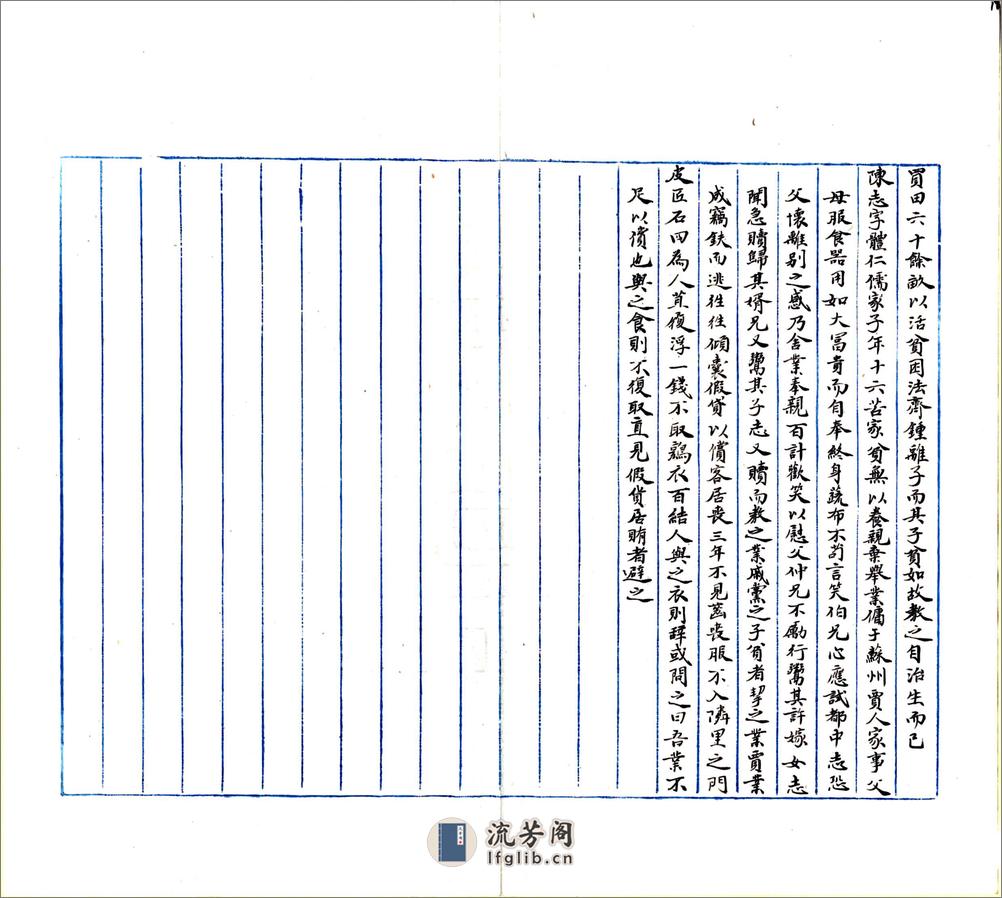 買田六十餘畝以活貧困法齊鍾離子而其子貧如故教之自治生而已
陳志字體仁儒家子年十六苦家貧無以養親棄舉業傭于蘇州賈人家事父
母服食器用如大富貴而自奉終身蔬布不苟言笑伯兄心應試都中志恐
父懷離別之感乃舍業奉親百計歡笑以慰父仲兄不勵行鬻其許嫁女志
聞急贖歸其壻兄又鬻其子志又贖而教之業戚黨之子貧者挈之業賈業
成竊鈌而逃往往傾囊假貸以償客居喪三年不見齒喪服不入隣里之門
皮匠石四為人葺履浮一錢不取鶉衣百結人與之衣則辞或問之曰吾業不
足以償也與之食則不復取直見假貨居賄者避之
流芳阁
lfglib.cn